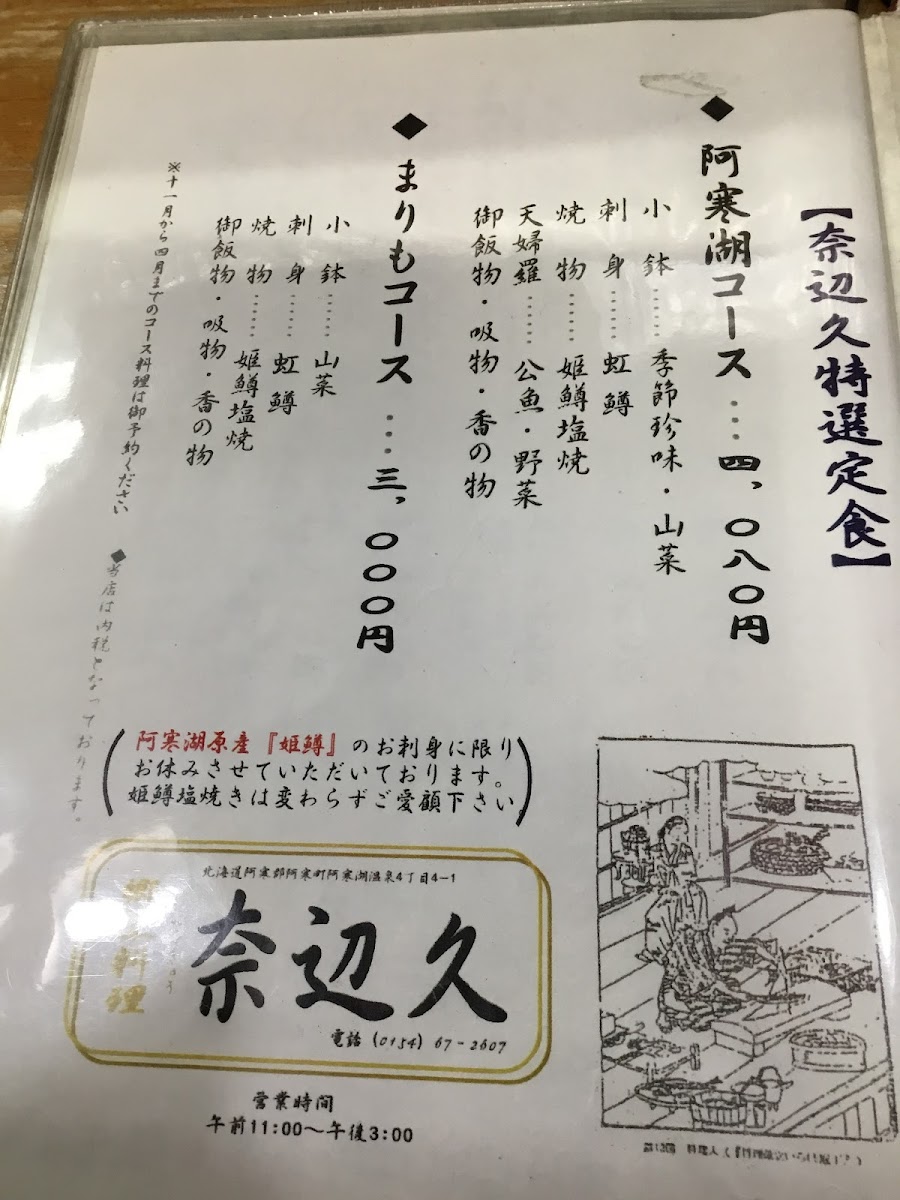 【奈辺久特選定食】
◆阿寒湖コース…四、〇八〇円
小鉢……季節珍味・山菜
刺身……虹鱒
焼物……姫鱒塩焼
天婦羅……公魚・野菜
御飯物・吸物・香の物
◆まりもコース…三、〇〇〇円
小鉢……山菜
刺身……虹鱒
焼物……姫鱒塩焼
御飯物・吸物・香の物
※十一月から四月までのコース料理は御予約ください
◆当店は内税となっております。
阿寒湖原産『姫鱒』のお刺身に限り
お休みさせていただいております。
姫鱒塩焼きは変わらずご愛顧下さい
北海道阿寒郡阿寒町阿寒湖温泉4丁目4-1
料理
奈辺久
電話(0154)67-2607
営業時間
午前11:00〜午後3:00